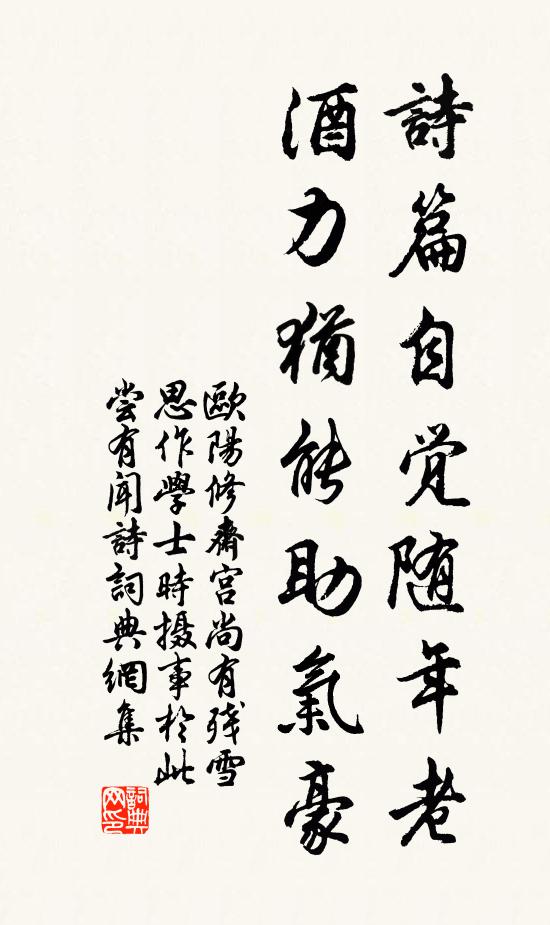 詩篇自觉随年老
酒力猶能助氣豪
歐陽修齋宫尚有残雪
思作學士時摄事於此
尝有闻詩詞典網集
詞典网印